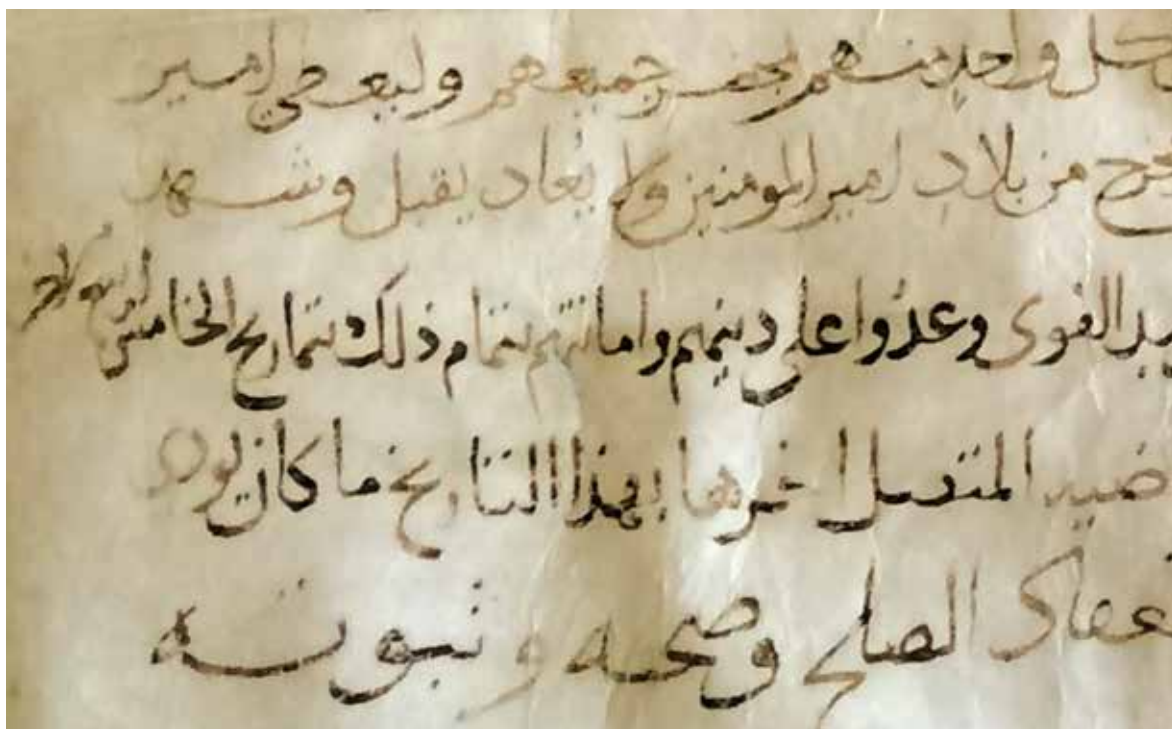 كل واحد منهم بمحضر جميعهم ولبعض امير
يخرج من بلاد امير المومنين ولا يعاد يقبل وشهد
عبد القوى وعدوا على دينهم وامانتهم بتمام ذلك بتاريخ الخامس
المتصل اخرها بهذا التاريخ ما كان
الصلح وصحه وثبوته